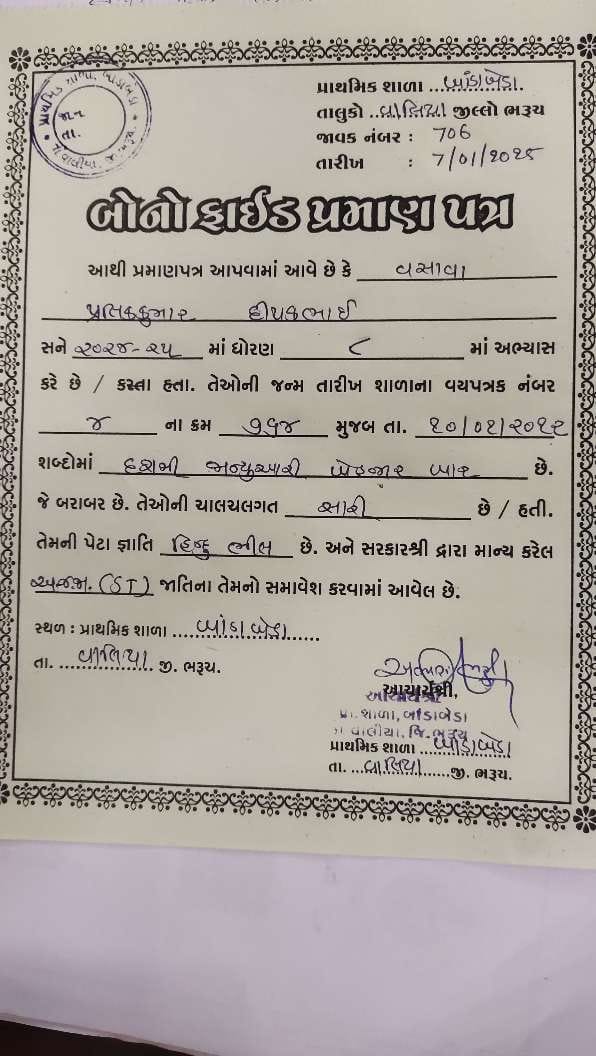 પ્રાથમિક શાળા, બાંડાબેડા
જા.ન
તા.
તા.વાલીયા, જી.ભરૂચ
પ્રાથમિક શાળા ..બાંડાબેડા.
તાલુકો ..વાલિયા જીલ્લો ભરૂચ
જાવક નંબર : 706
તારીખ : 7/01/2025
બોનો ફાઈડ પ્રમાણ પત્ર
આથી પ્રમાણપત્ર આપવામાં આવે છે કે વસાવા
પ્રતિકકુમાર દીપકભાઈ
સને ૨૦૨૪-૨૫ માં ધોરણ ૮ માં અભ્યાસ
કરે છે / કરતા હતા. તેઓની જન્મ તારીખ શાળાના વયપત્રક નંબર
૪ ના ક્રમ ૭૬૪ મુજબ તા. ૧૦/૦૧/૨૦૧૨
શબ્દોમાં દશમી જાન્યુઆરી બેહજાર બાર છે.
જે બરાબર છે. તેઓની ચાલચલગત સારી છે / હતી.
તેમની પેટા જ્ઞાતિ હિન્દુ ભીલ છે. અને સરકારશ્રી દ્વારા માન્ય કરેલ
અ.જ.જા. (ST) જાતિના તેમનો સમાવેશ કરવામાં આવેલ છે.
સ્થળ : પ્રાથમિક શાળા ....બાંડાબેડા......
તા. ...વાલિયા જી. ભરૂચ.
આચાર્યશ્રી,
આચાર્યશ્રી
પ્રા. શાળા, બાંડાબેડા
તા વાલીયા, જિ.ભરૂચ
પ્રાથમિક શાળા ..બાંડાબેડા
તા. ...વાલિયા......જી. ભરૂચ.